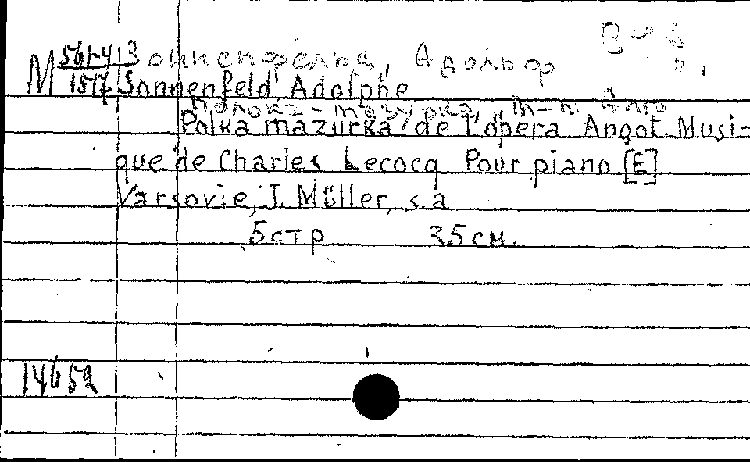 М 561-4/1517 Зонненфельд, Адольф
Sonnenfeld, Adolphe
Полька-мазурка,
Polka mazurka de l'opera Angot. Musi-
que de Charles Lecocq Pour piano [E]
Varsovie, J. Müller, s.a
5 стр 35 см.